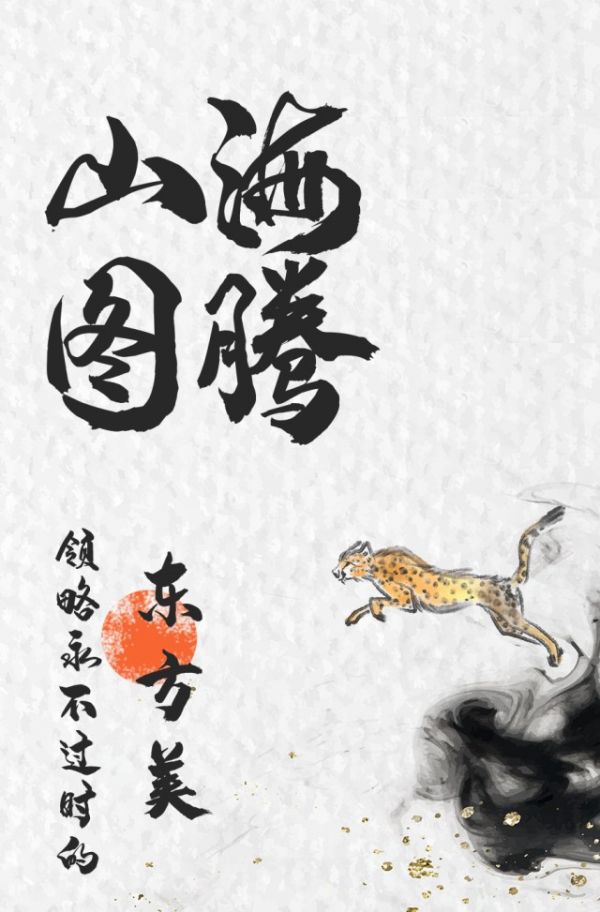 山海
图腾
领略永不过时的
东方美